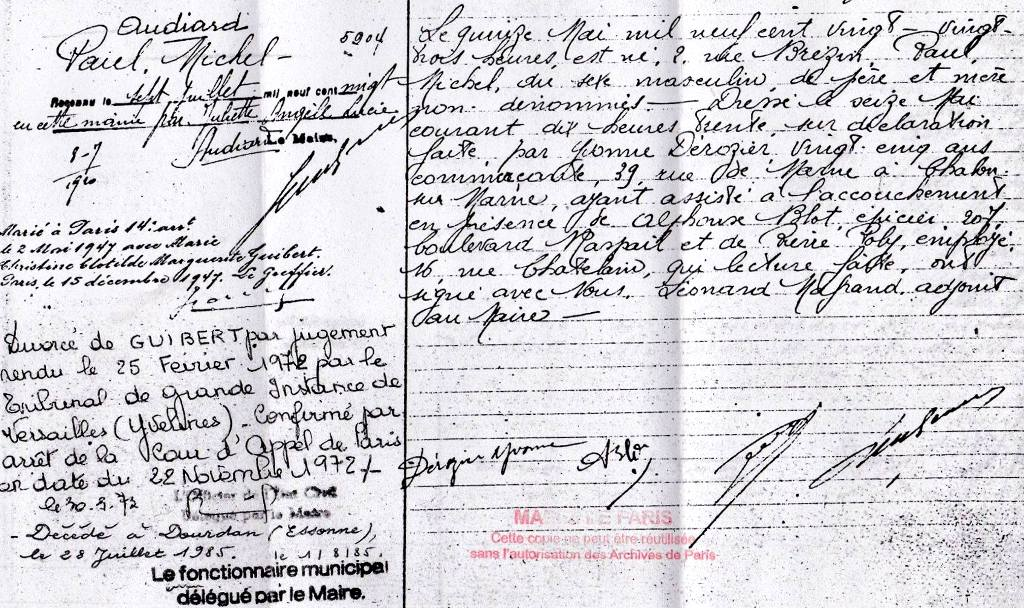 Audiard
Paul, Michel —
5204
Reconnu le sept juillet mil neuf cent vingt
en cette mairie par Juliette Angèle Lucie
Audiard. Le Maire,
8-7
1920
Marié à Paris 14e arrt
le 2 Mai 1947 avec Marie
Christine Clotilde Marguerite Guibert.
Paris, le 15 décembre 1947. Le Greffier.
Divorcé de GUIBERT par jugement
rendu le 25 Février 1972 par le
Tribunal de grande Instance de
Versailles (Yvelines). Confirmé par
arrêt de la Cour d'Appel de Paris
en date du 22 Novembre 1972
le 30.5.73
L'Officier de l'Etat Civil
délégué par le Maire
- Décédé à Dourdan (Essonne),
le 28 Juillet 1985. le 1/8/85.
Le fonctionnaire municipal
délégué par le Maire.
Le quinze Mai mil neuf cent vingt — vingt-
trois heures, est né, 2, rue Brezin Paul,
Michel, du sexe masculin, de père et mère
non dénommés — Dressé le seize Mai
courant dix heures trente, sur déclaration
faite, par Yvonne Derozier vingt-cinq ans
commerçante, 39, rue de Marne à Chalon-
sur Marne, ayant assisté à l'accouchement
en présence de Alphonse Blot, épicier 207,
boulevard Raspail et de René Joly, employé,
16, rue Chatelain, qui lecture faite, ont
signé avec Nous. Léonard adjoint
au Maire —
Dérozier Yvonne ABlot
MAIRIE DE PARIS
Cette copie ne peut être réutilisée
sans l'autorisation des Archives de Paris